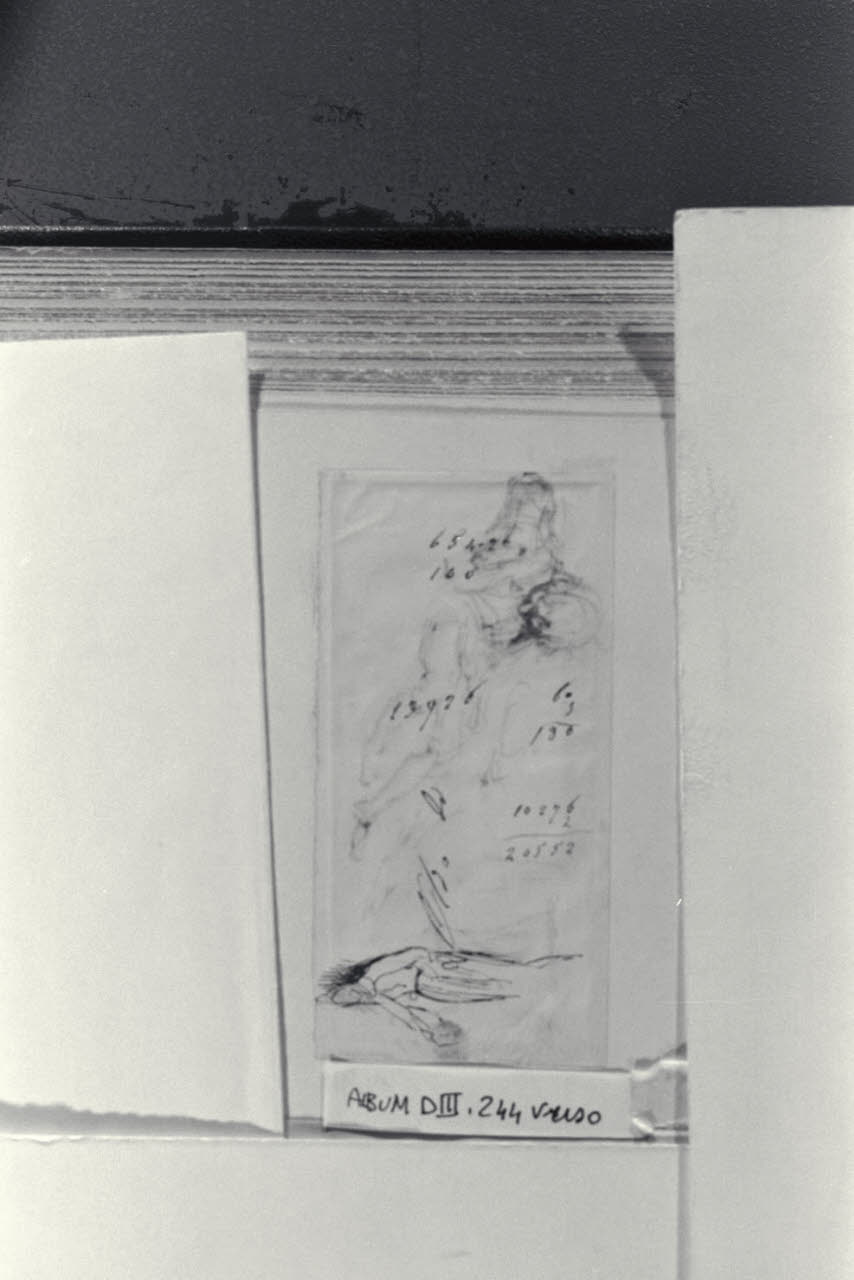 65426
160
13926
60
3
180
10276
2
20552
ALBUM DIII.244 verso